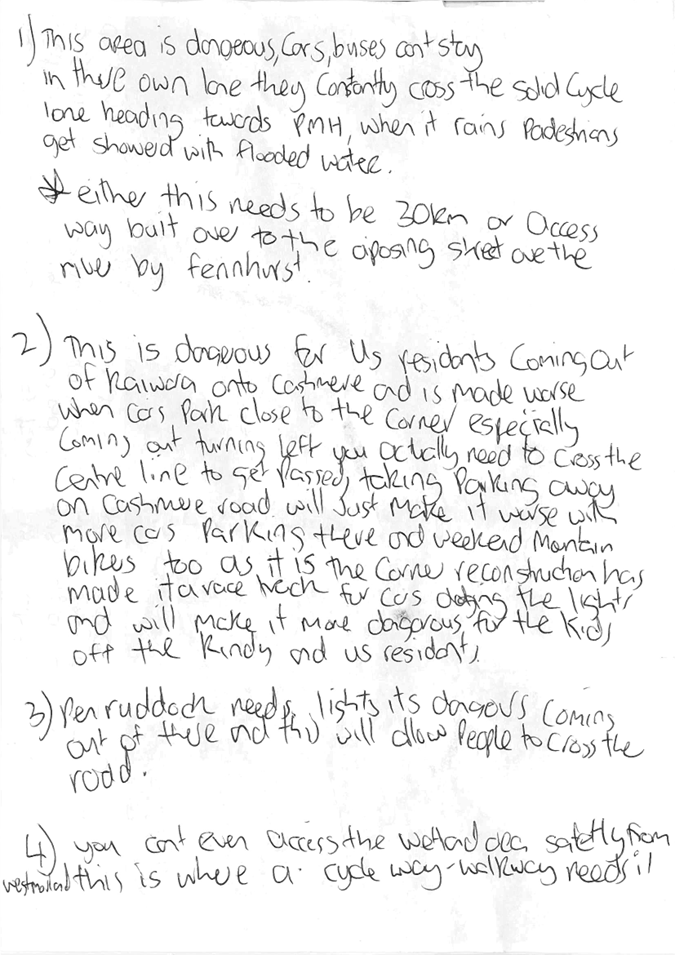 1) This area is dangeous, Cars, buses cant stay
in there own lane they Constantly cross the solid Cycle
lane heading towards PMH, when it rains Padestrians
get showerd with flooded water.
* either this needs to be 30km or access
way built over to the oposing street over the
river by fernhurst.
2) This is dangeous for us residants Coming Out
of Kaiwara onto Cashmere and is made worse
when cars Park close to the Corner especially
Coming out turning left you actually need to Cross the
Centre line to get Passed, taking Parking away
on Cashmere road will Just make it worse with
more cars Parking there and weekend Mantain
bikes too as it is the Corner reconstruction has
made it a race track for cars the lights
and will make it more dangorous for the Kids
off the Kindy and us residents.
3) Penruddock needs lights its dangous Coming
out of there and this will allow People to Cross the
road.
4) you cant even access the wetland area safetly from
westmorland this is where a cycle way-walkway needs it